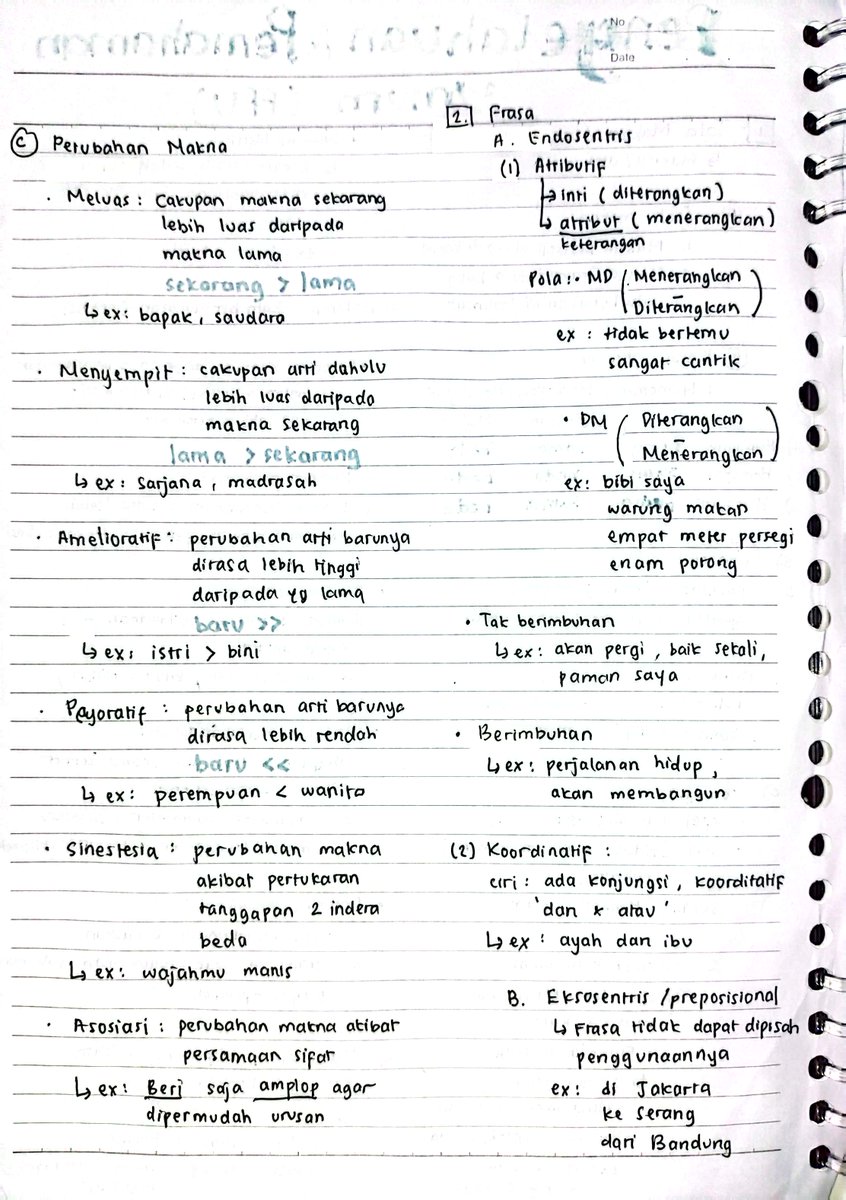 No
Date
C Perubahan Makna
· Meluas : Cakupan makna sekarang
lebih luas daripada
makna lama
sekarang > lama
↳ ex: bapak, saudara
· Menyempit : cakupan arti dahulu
lebih luas daripada
makna sekarang
lama > sekarang
↳ ex: sarjana, madrasah
· Amelioratif : perubahan arti barunya
dirasa lebih tinggi
daripada yg lama
baru >>
↳ ex: istri > bini
· Peyoratif : perubahan arti barunya
dirasa lebih rendah
baru <<
↳ ex: perempuan < wanita
· Sinestesia : perubahan makna
akibat pertukaran
tanggapan 2 indera
beda
↳ ex: wajahmu manis
· Asosiasi : perubahan makna akibat
persamaan sifat
↳ ex: Beri saja amplop agar
dipermudah urusan
2. Frasa
A. Endosentris
(1) Atributif
↳ inti (diterangkan)
↳ atribut (menerangkan)
keterangan
Pola : · MD (Menerangkan
-
Diterangkan)
ex : tidak bertemu
sangat cantik
· DM (Diterangkan
-
Menerangkan)
ex: bibi saya
warung makan
empat meter persegi
enam potong
· Tak berimbuhan
↳ ex: akan pergi, baik sekali,
paman saya
· Berimbuhan
↳ ex: perjalanan hidup,
akan membangun
(2) Koordinatif :
ciri : ada konjungsi, koorditatif
'dan & atau'
↳ ex : ayah dan ibu
B. Eksosentris / preposisional
↳ Frasa tidak dapat dipisah
penggunaannya
ex: di Jakarta
ke Serang
dari Bandung